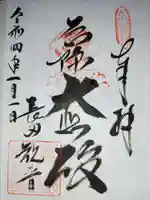 奉拝
大悲殿
令和四年一月一日
長田観音